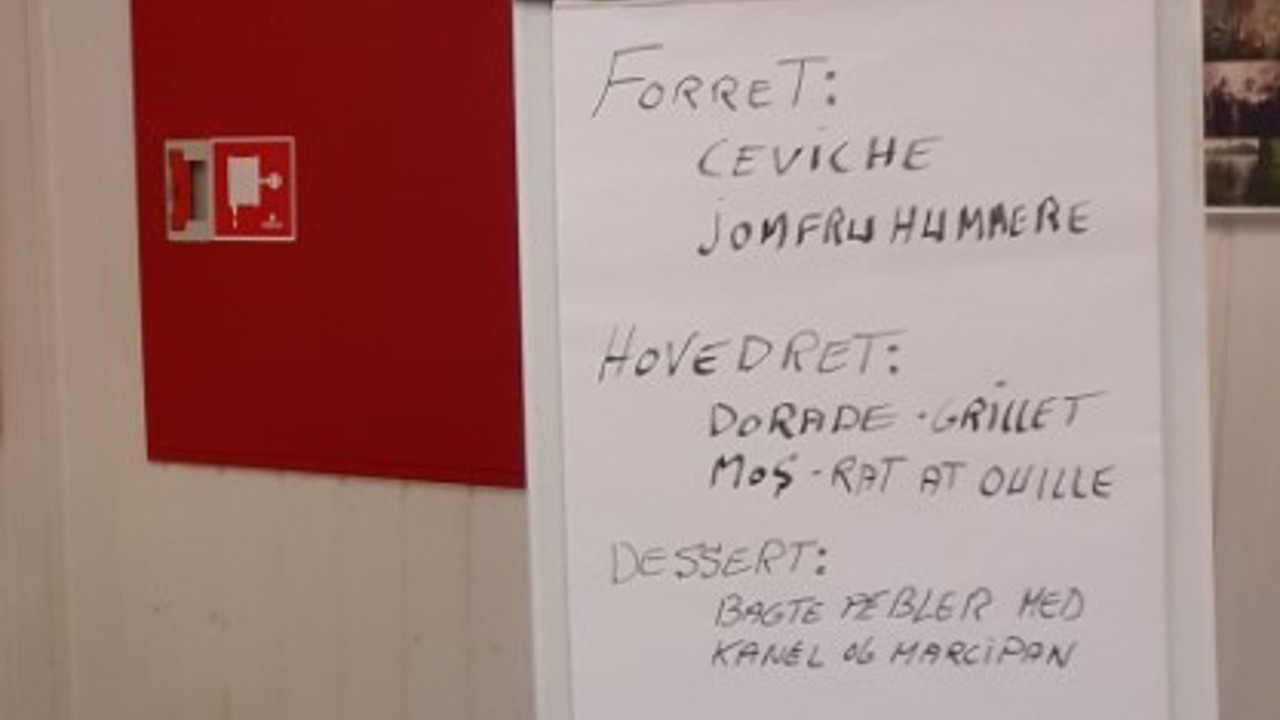 FORRET:
CEVICHE
JOMFRU HUMMERE
HOVEDRET:
DORADE - GRILLET
MOS - RAT AT OUILLE
DESSERT:
BAGTE ÆBLER MED
KANEL OG MARCIPAN